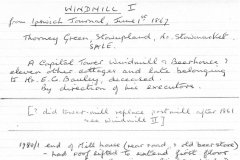 WINDMILL I
from Ipswich Journal, June 1st 1867.
Thorney Green, Stowupland, Nr. Stowmarket
SALE.
A Capital Tower Windmill & Beerhouse &
eleven other cottages and late belonging
to Mr. E. G. Bauley, deceased.
By direction of his executors.
[? did tower mill replace post mill after 1861
see Windmill II]
1980/1 end of Mill House (near road, & old beer store)
- had roof lifted to extend first floor